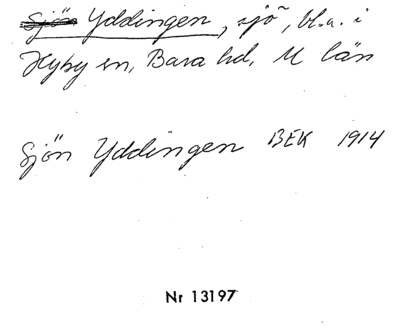 Sjön Yddingen, sjö, bl.a. i
Hyby sn, Bara hd, M län
Sjön Yddingen BEK 1914
Nr 13197